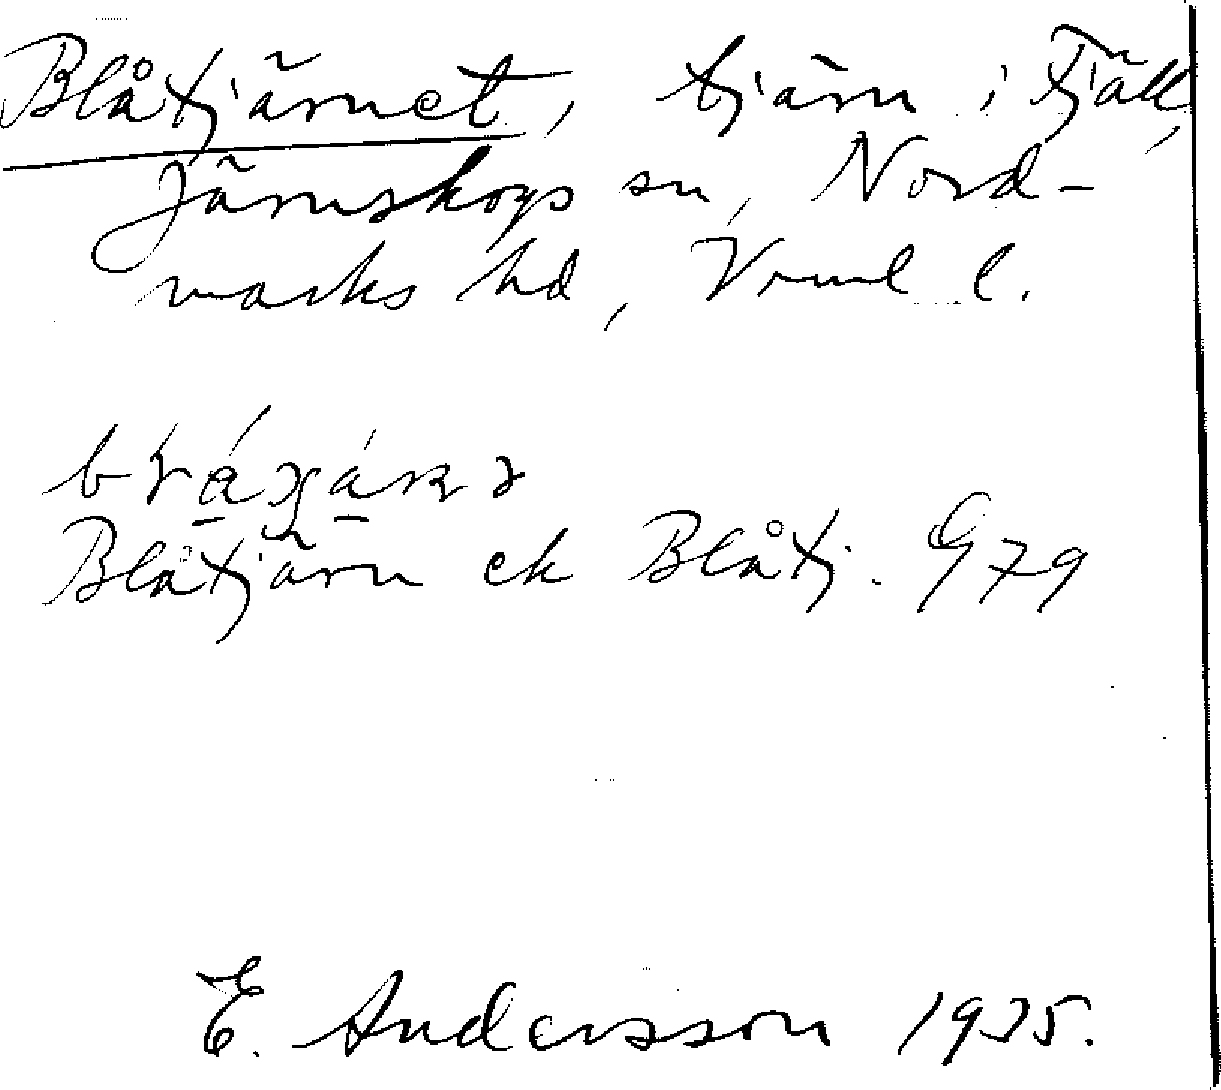 Blåtjärnet, tjärn i Fjäll,
Järnskogs sn, Nord-
marks hd, Vrml l.
Blåtjärn ek Blåtj. G79
E. Andersson 1935.